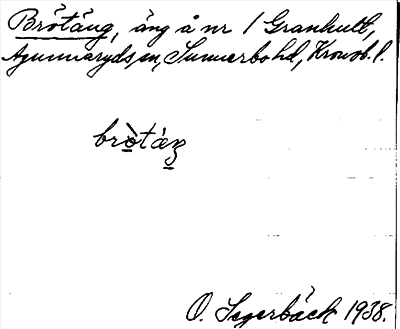 Brötäng, äng å nr 1 Granhult,
Agunnaryds sn, Sunnerbo hd, Kronob. l.
brò̱táŋ̱
O. Segerbäck 1938.